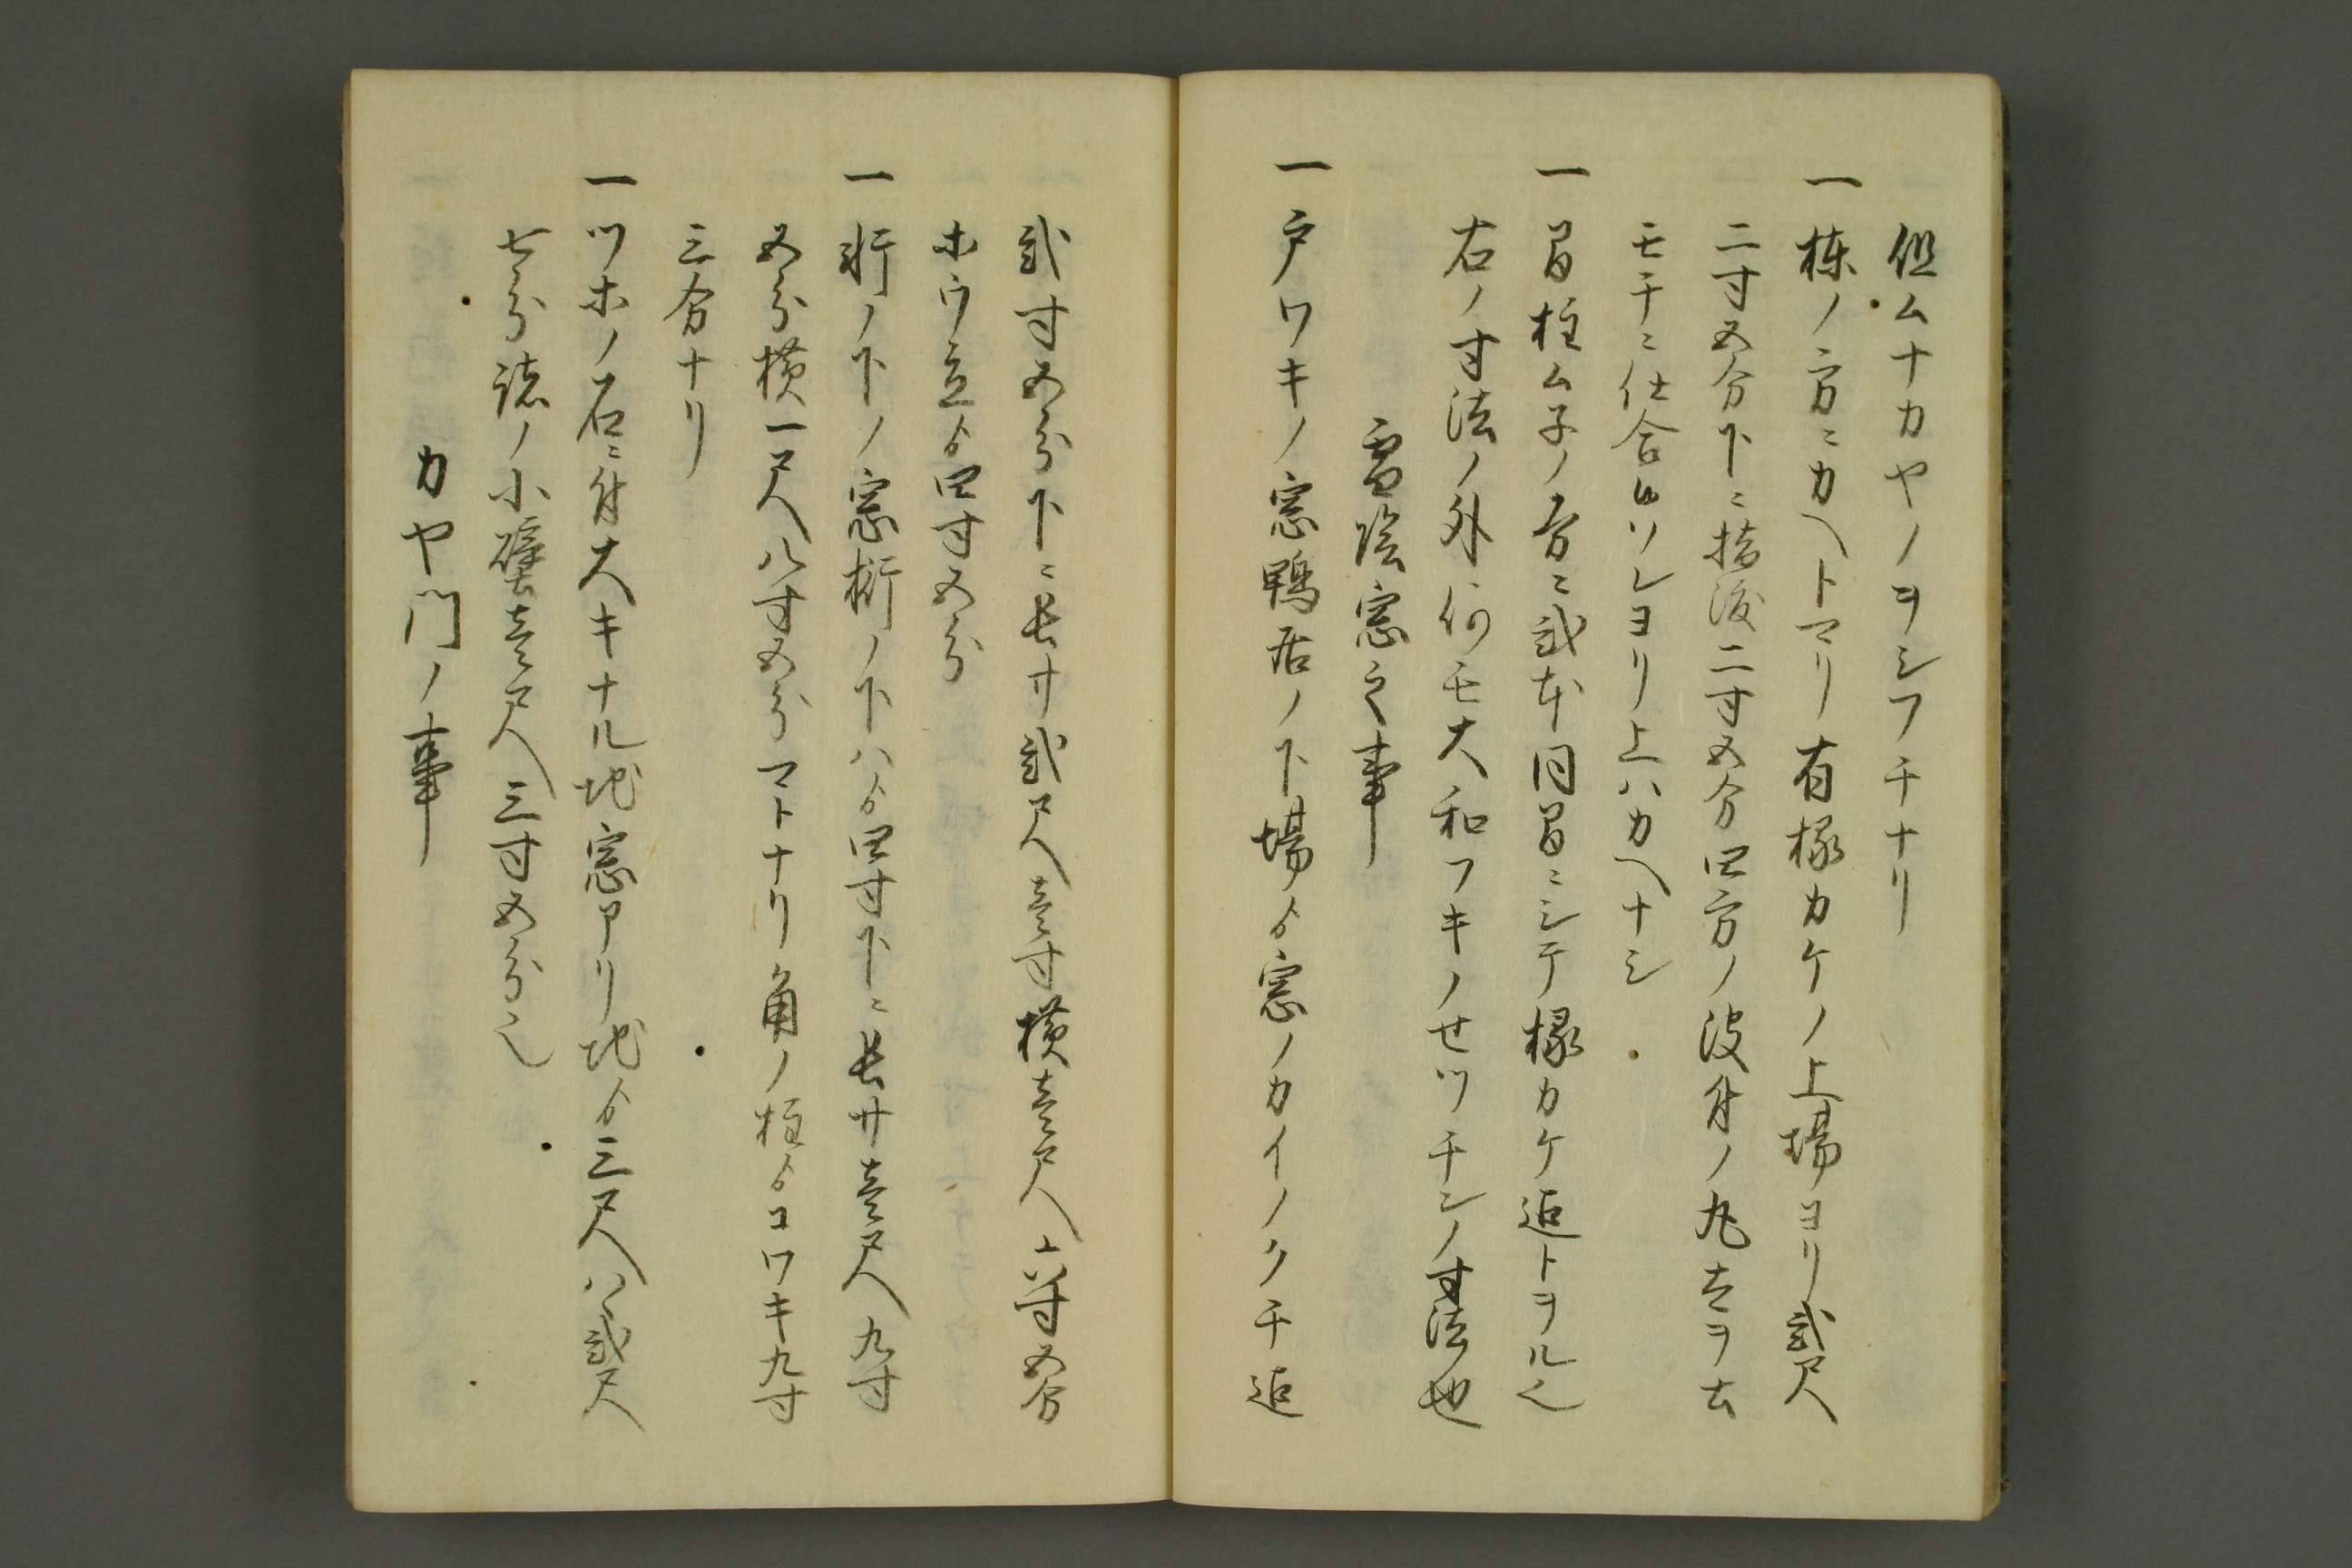 但ムナカヤノヲシフチナリ
一棟ノ方ニカヘトマリ有椽カケノ上場ヨリ弐尺
二寸五分下ニ指渡二寸五分四方ノ皮付ノ丸太ヲ
モチニ仕合ソレヨリ上ハカヘナシ
一間柱ムネノ方ニ弐本同間ニシテ椽カケ迠トヲル也
右ノ寸法ノ外何モ大和フキノせツチンノ寸法也
雪陰窓之事
一戸ワキノ窓鴨居ノ下場ゟ窓ノカイノクチ迠
弐寸五分下ニ長サ弐尺壱寸横壱尺六寸五分
ホウ立ゟ四寸五分
一桁ノ下ノ窓桁ノ下ハゟ四寸下ニ長サ壱尺九寸
五分横一尺八寸五分マトナリ角ノ柱ゟコワキ九寸
三分ナリ
一ツホノ石ニ付大キナル地窓アリ地ゟ三尺ハ弐尺
七分諸ノ小壁壱尺三寸五分也
カヤ門ノ事